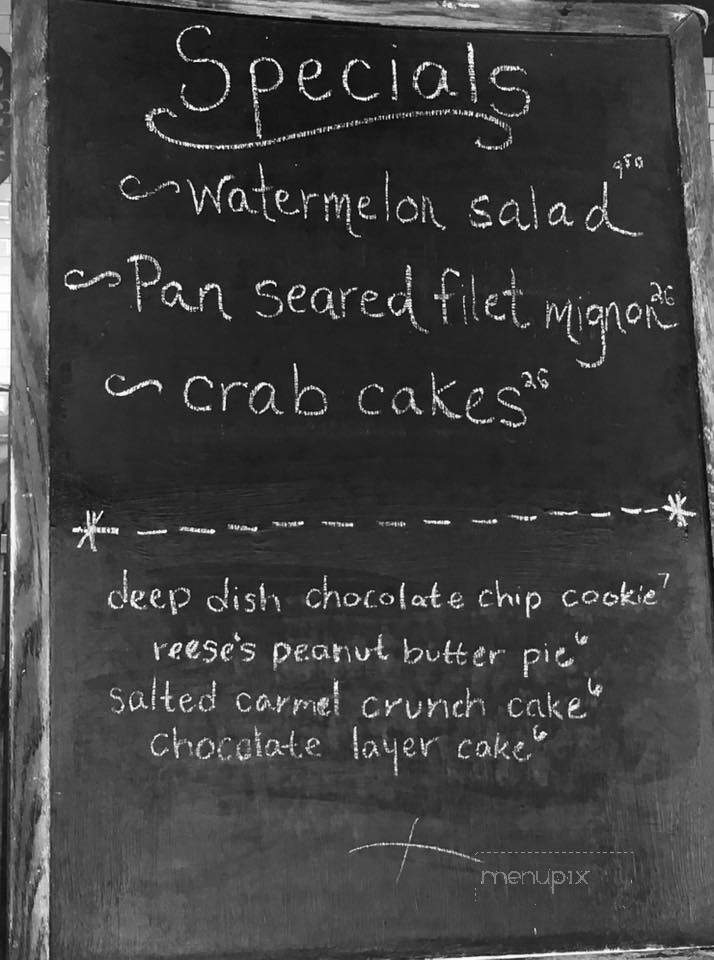 Specials
Watermelon salad 950
Pan seared filet mignon 26
crab cakes 26
deep dish chocolate chip cookie 7
reese's peanut butter pie 6
salted carmel crunch cake 6
chocolate layer cake 6
menupix